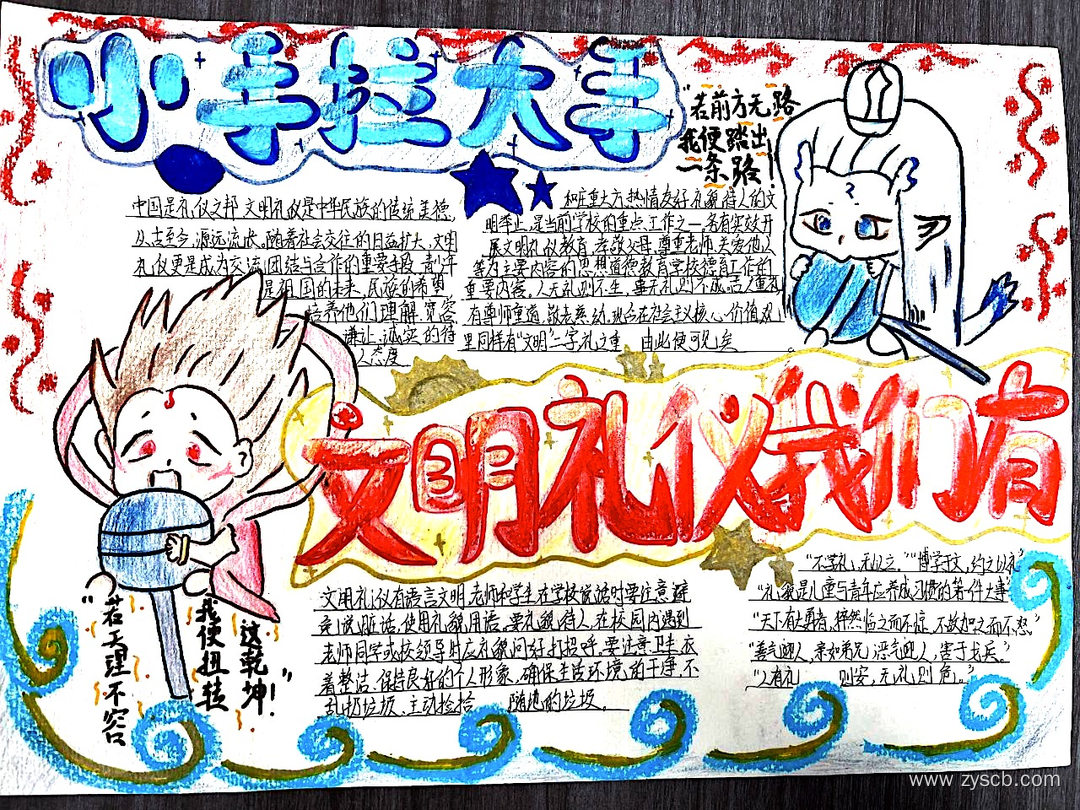 小手拉大手
"若前方无路
我便踏出
一条路!
中国是礼仪之邦,文明礼仪是中华民族的传统美德,
从古至今,源远流长。随着社会交往的日益扩大,文明
礼仪更是成为交流,团结与合作的重要手段,青少年
是祖国的未来,民族的希望
培养他们理解,宽容
谦让,诚实的待
人态度
和庄重大方,热情友好,礼貌待人的文
明举止,是当前学校的重点工作之一,务有实效开
展文明礼仪教育,孝敬父母,尊重老师,关爱他人
等为主要内容的思想道德教育学校德育工作的
重要内容。人无礼则不生,事无礼则不成。古人重礼
有尊师重道,敬老慕幼,现今在社会主义核心价值观
里同样有"文明"二字礼之重 由此便可见矣
文明礼仪我们有
"若天理不容
我便扭转
这乾坤!"
文明礼仪有语言文明,老师和学生在学校说话时要注意避
免说脏话,使用礼貌用语。要礼貌待人,在校园内遇到
老师同学或校领导时应礼貌问好打招呼,要注意卫生衣
着整洁,保持良好的个人形象,确保生活环境的干净,不
乱扔垃圾,主动捡拾 随地的垃圾。
"不学礼,无以立。""博学于文,约之以礼"
"礼貌是儿童与青年应养成习惯的第一件大事"
"天下有大勇者,猝然临之而不惊,不故加之而不怒。"
"善气迎人,亲如弟兄;恶气迎人,害于戈兵。"
"人有礼 则安,无礼则危。"
www.zyscb.com